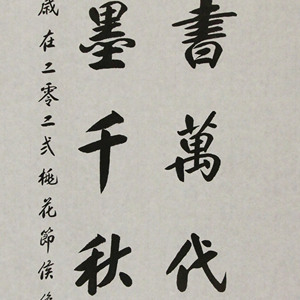 書萬代
墨千秋
歲在二零二弍桃花節侯